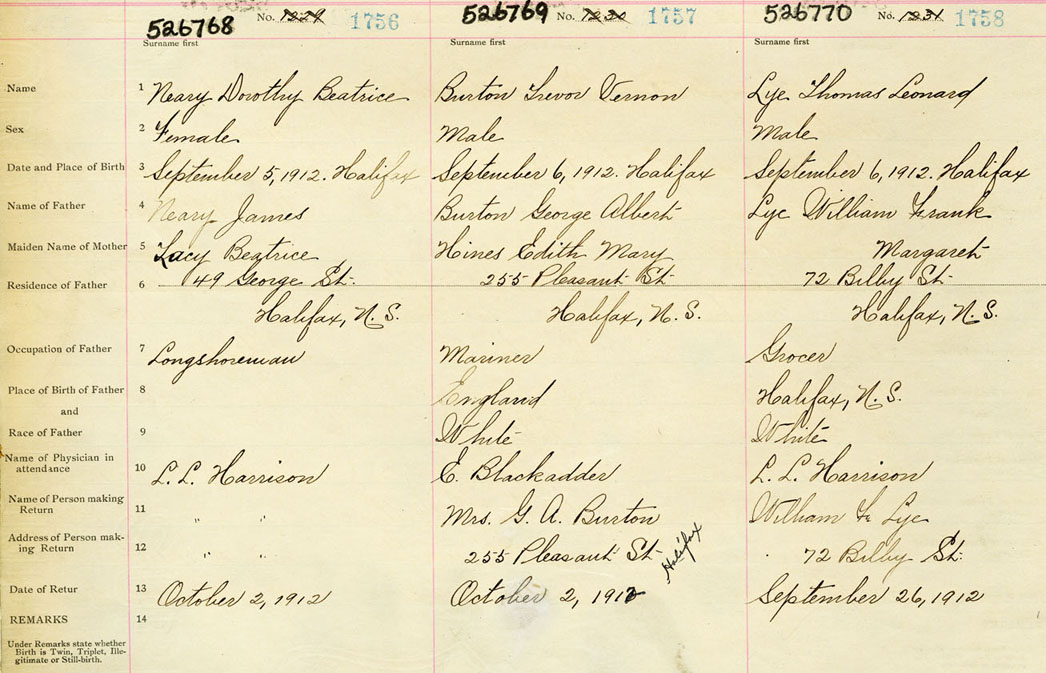 526768 No. 1229 1756 526769 No. 1230 1757 526770 No. 1231 1758
Surname first Surname first Surname first
Name 1 Neary Dorothy Beatrice Burton Trevor Vernon Lye Thomas Leonard
Sex 2 Female Male Male
Date and Place of Birth 3 September 5, 1912. Halifax September 6, 1912. Halifax September 6, 1912. Halifax
Name of Father 4 Neary James Burton George Albert Lye William Frank
Maiden Name of Mother 5 Lacy Beatrice Hines Edith Mary Margaret
Residence of Father 6 49 George St. 255 Pleasant St. 72 Bilby St.
Halifax, N.S. Halifax, N.S. Halifax, N.S.
Occupation of Father 7 Longshoreman Mariner Grocer
Place of Birth of Father 8 England Halifax, N.S.
and
Race of Father 9 White White
Name of Physician in
attendance 10 L. L. Harrison E. Blackadder L. L. Harrison
Name of Person making
Return 11 " " Mrs. G. A. Burton William F. Lye
Address of Person mak-
ing Return 12 " " 255 Pleasant St. Halifax 72 Bilby St.
Date of Retur 13 October 2, 1912 October 2, 1912 September 26, 1912
REMARKS 14
Under Remarks state whether
Birth is Twin, Triplet, Ille-
gitimate or Still-birth.